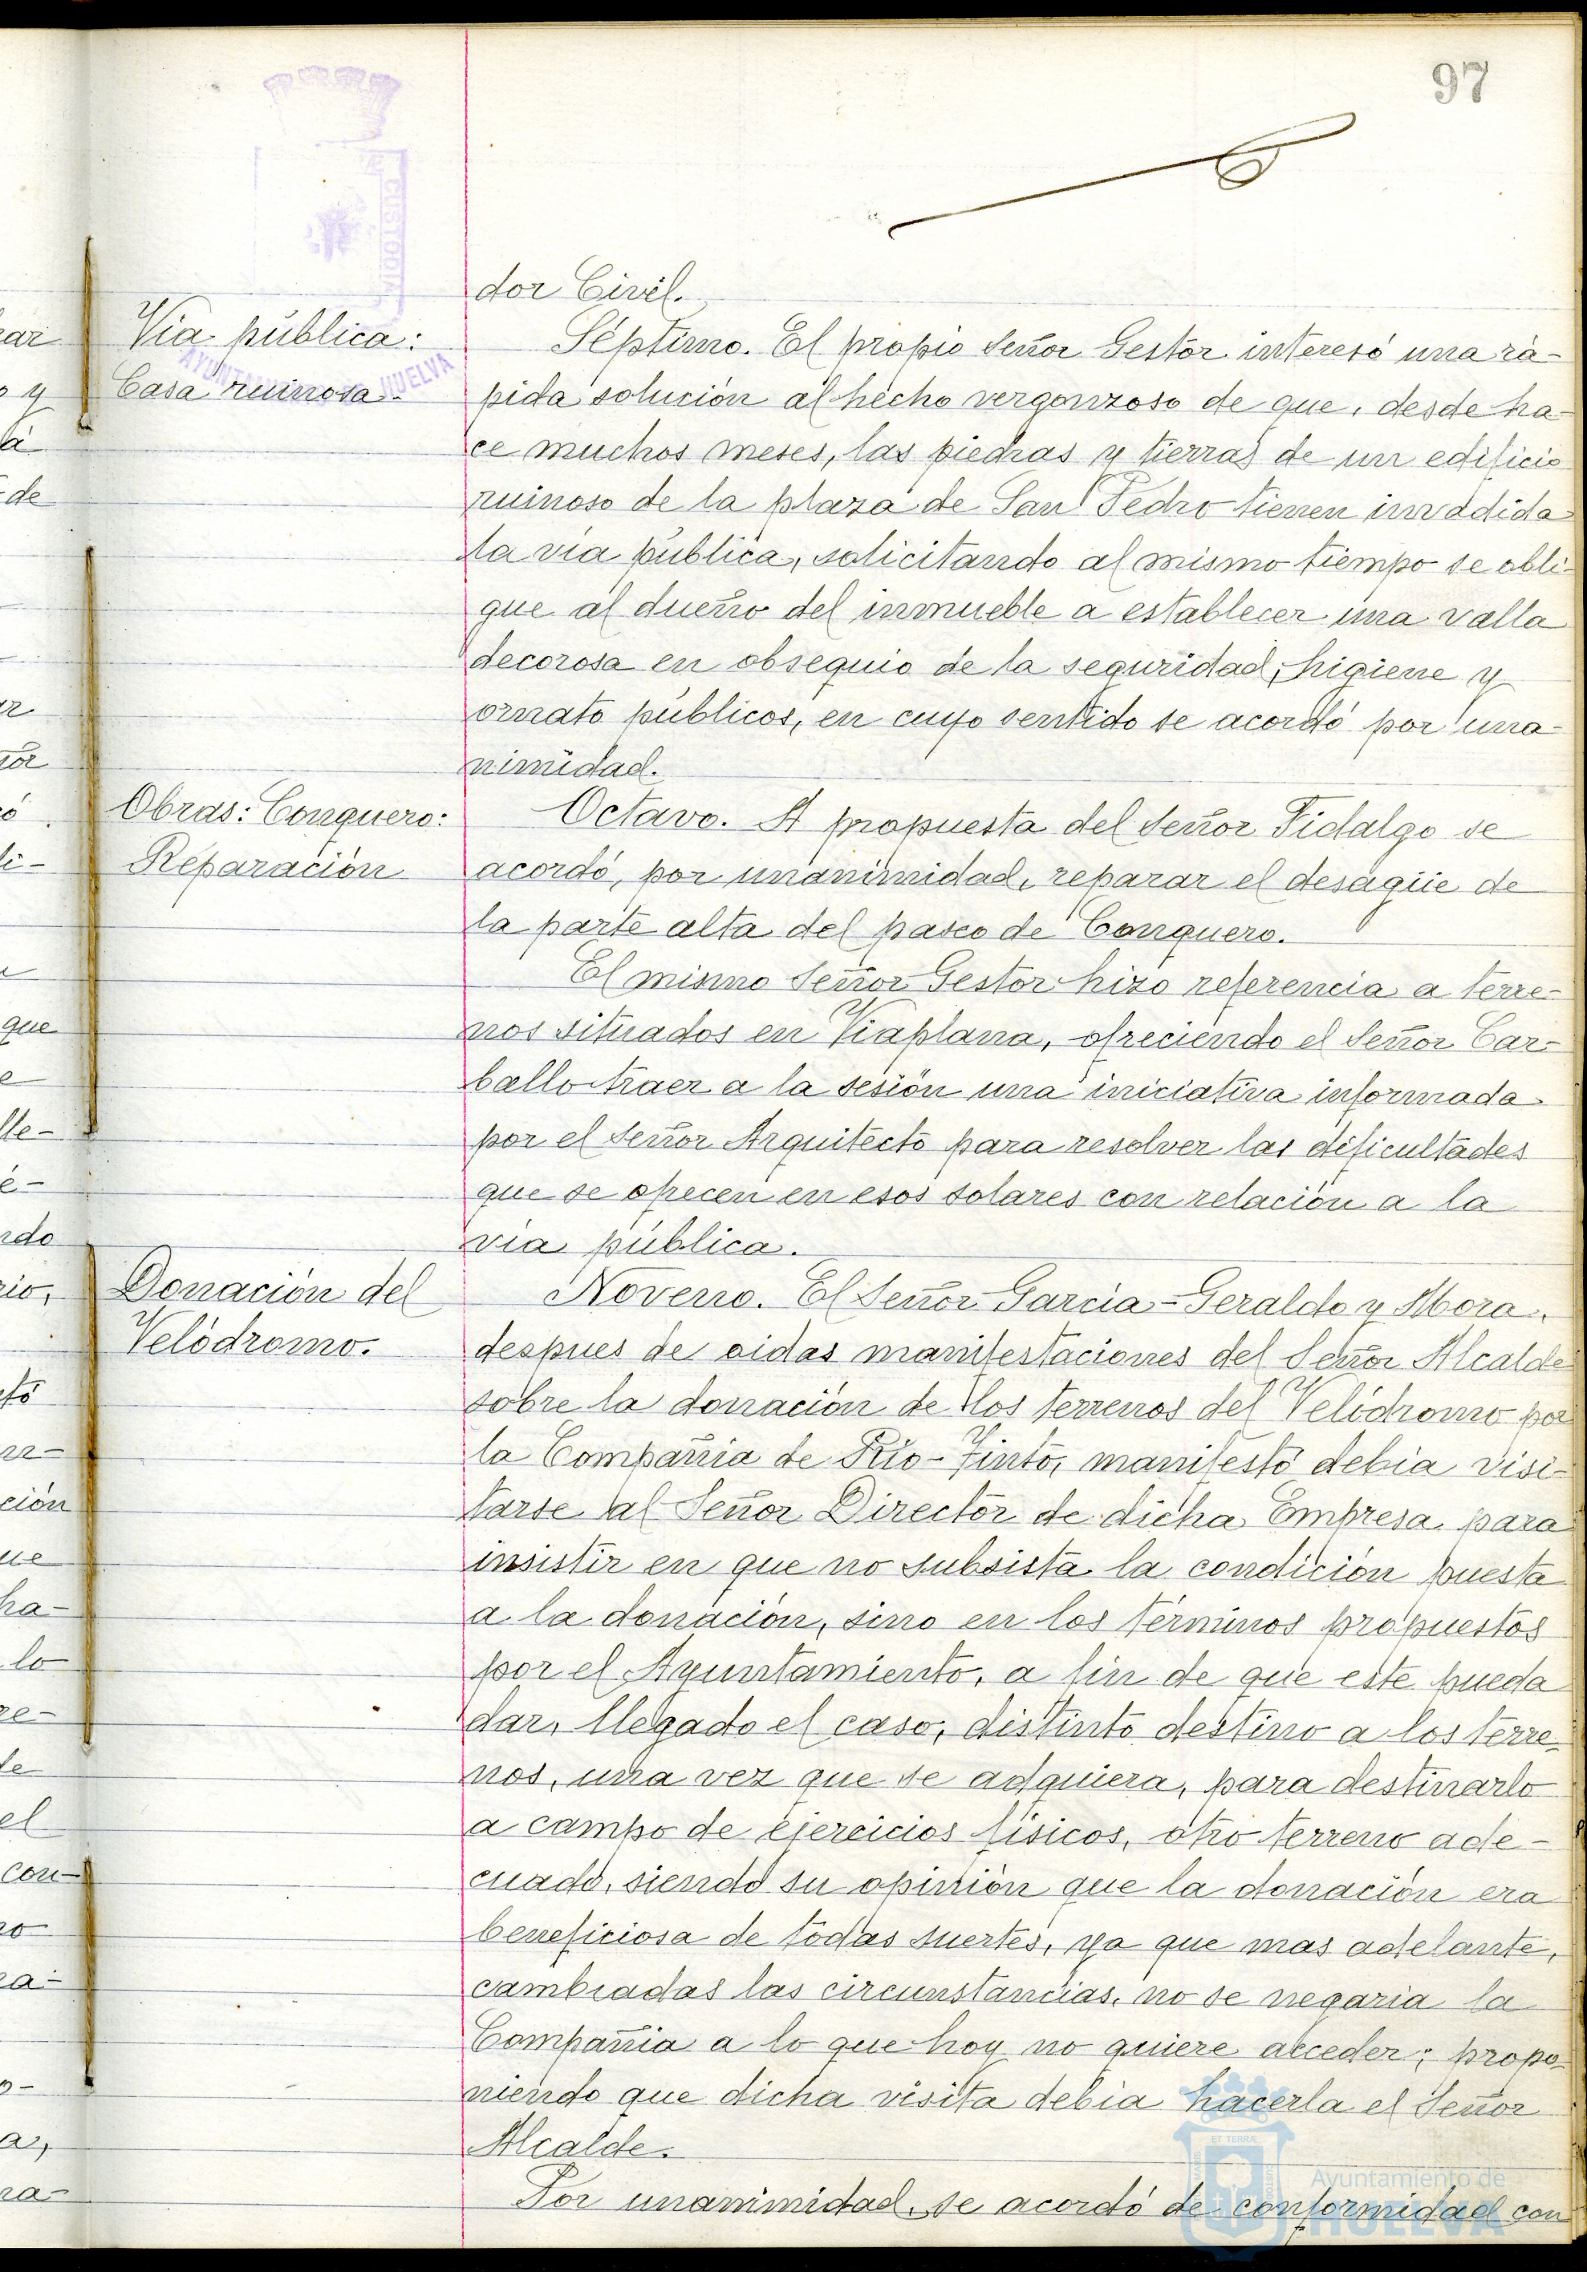 97
dor Civil.
Via pública:
Casa ruinosa.
Séptimo. El propio Señor Gestor interesó una rá-
pida solución al hecho vergonzoso de que, desde ha-
ce muchos meses, las piedras y tierras de un edificio
ruinoso de la plaza de San Pedro tienen invadida
la vía pública, solicitando al mismo tiempo se obli-
gue al dueño del inmueble a establecer una valla
decorosa en obsequio de la seguridad, higiene y
ornato públicos, en cuyo sentido se acordó por una-
nimidad.
Obras: Conquero:
Reparación
Octavo. A propuesta del Señor Fidalgo se
acordó, por unanimidad, reparar el desagüe de
la parte alta del paseo de Conquero.
El mismo Señor Gestor hizo referencia a terre-
nos situados en Viaplana, ofreciendo el Señor Car-
ballo traer a la sesión una iniciativa informada
por el Señor Arquitecto para resolver las dificultades
que se ofrecen en esos solares con relación a la
vía pública.
Donación del
Velódromo.
Noveno. El Señor García-Geraldo y Mora,
despues de oidas manifestaciones del Señor Alcalde
sobre la donación de los terrenos del Velódromo por
la Compañia de Río-Tinto, manifestó debia visi-
tarse al Señor Director de dicha Empresa para
insistir en que no subsista la condición puesta
a la donación, sino en los términos propuestos
por el Ayuntamiento, a fin de que este pueda
dar, llegado el caso, distinto destino a los terre-
nos, una vez que se adquiera, para destinarlo
a campo de ejercicios físicos, otro terreno ade-
cuado, siendo su opinión que la donación era
beneficiosa de todas suertes, ya que mas adelante,
cambiadas las circunstancias, no se negaria la
Compañia a lo que hoy no quiere acceder; propo-
niendo que dicha visita debia hacerla el Señor
Alcalde.
Por unanimidad, se acordó de conformidad con
CUSTODIA
AYUNTAMIENTO DE HUELVA
Ayuntamiento de
HUELVA